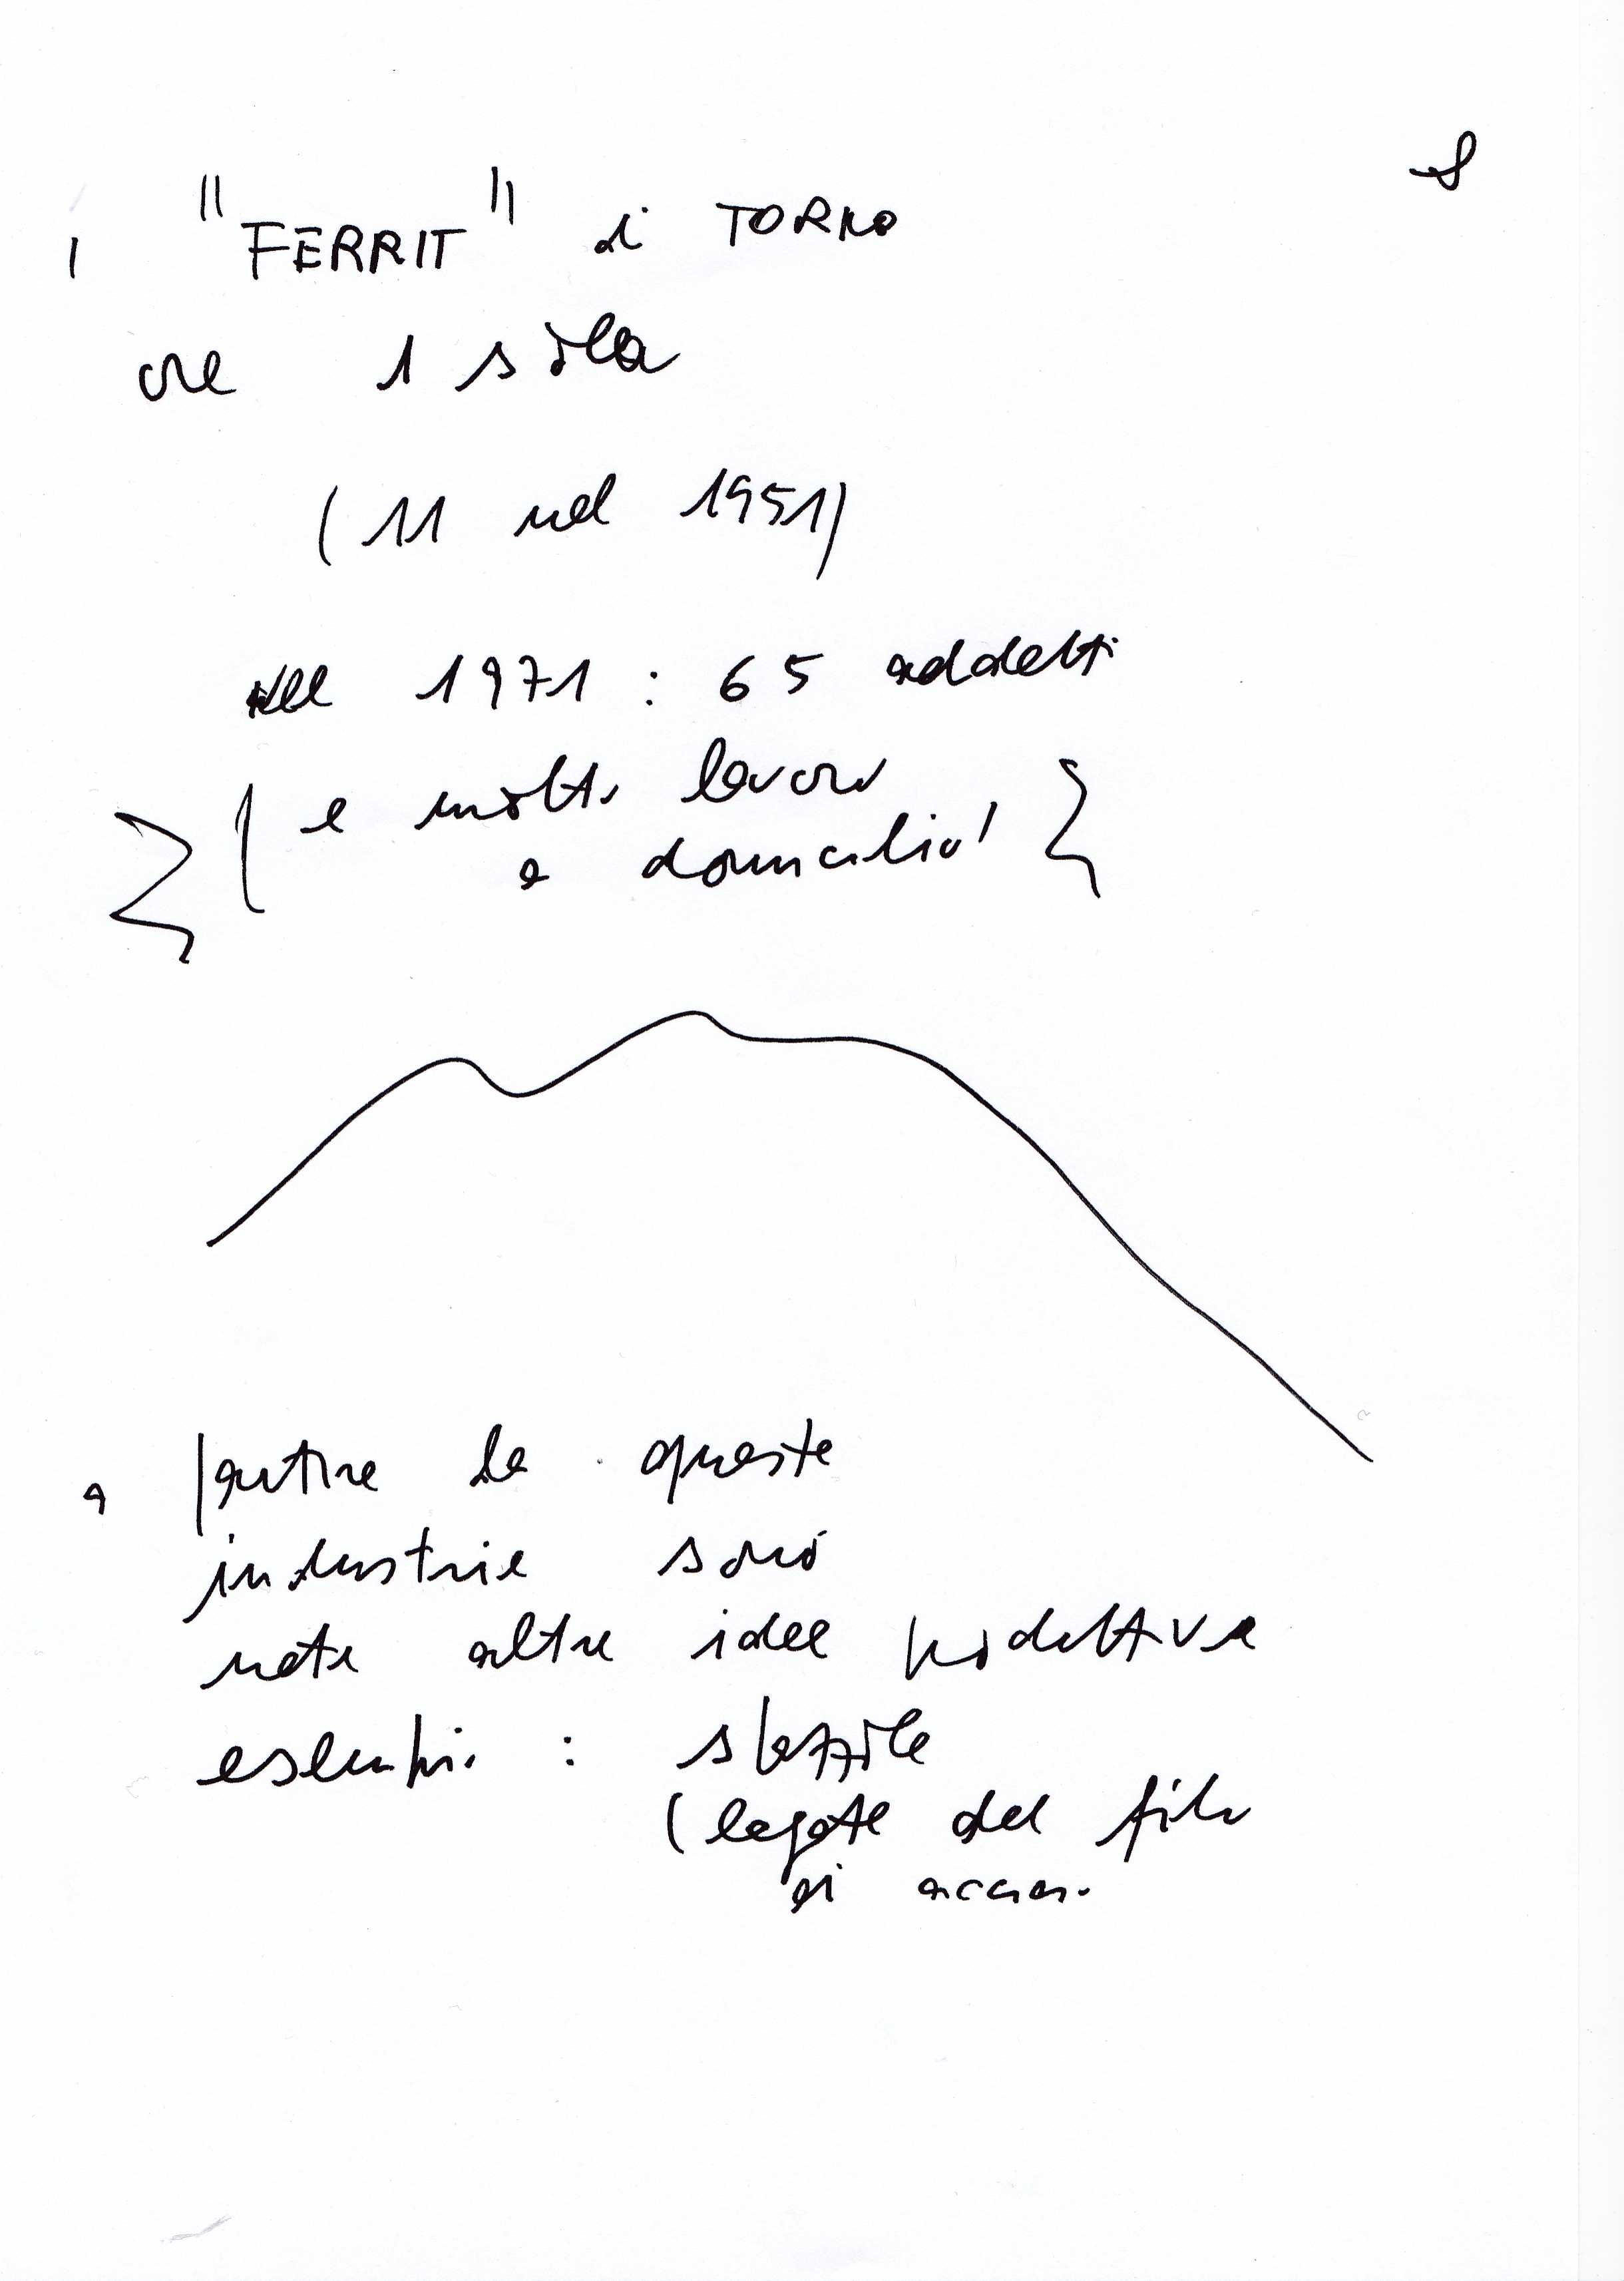 8
"FERRIT" di TORNO
ore 1 sola
(11 nel 1951)
nel 1971 : 65 addetti
e molto lavoro
a domicilio
a partire da queste
industrie sono
nate altre idee produttive
esempi : spazzole
(legate del filo
di acciaio